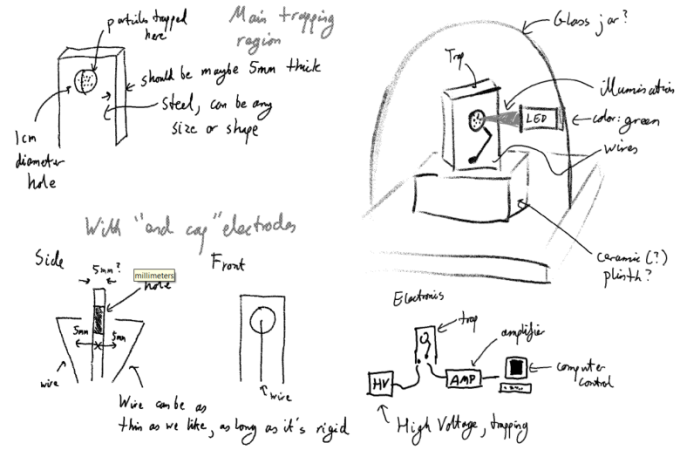 particles trapped
here
Main trapping
region
should be maybe 5mm thick
steel, can be any
size or shape
1cm
diameter
hole
Glass jar?
Trap
illumination
LED
color: green
wires
ceramic (?)
plinth?
With "end cap" electrodes
Side
5mm?
millimeters
hole
5mm
5mm
wire
Front
wire
Wire can be as
thin as we like, as long as it's rigid
Electronics
trap
amplifier
HV
AMP
computer
control
High Voltage, trapping